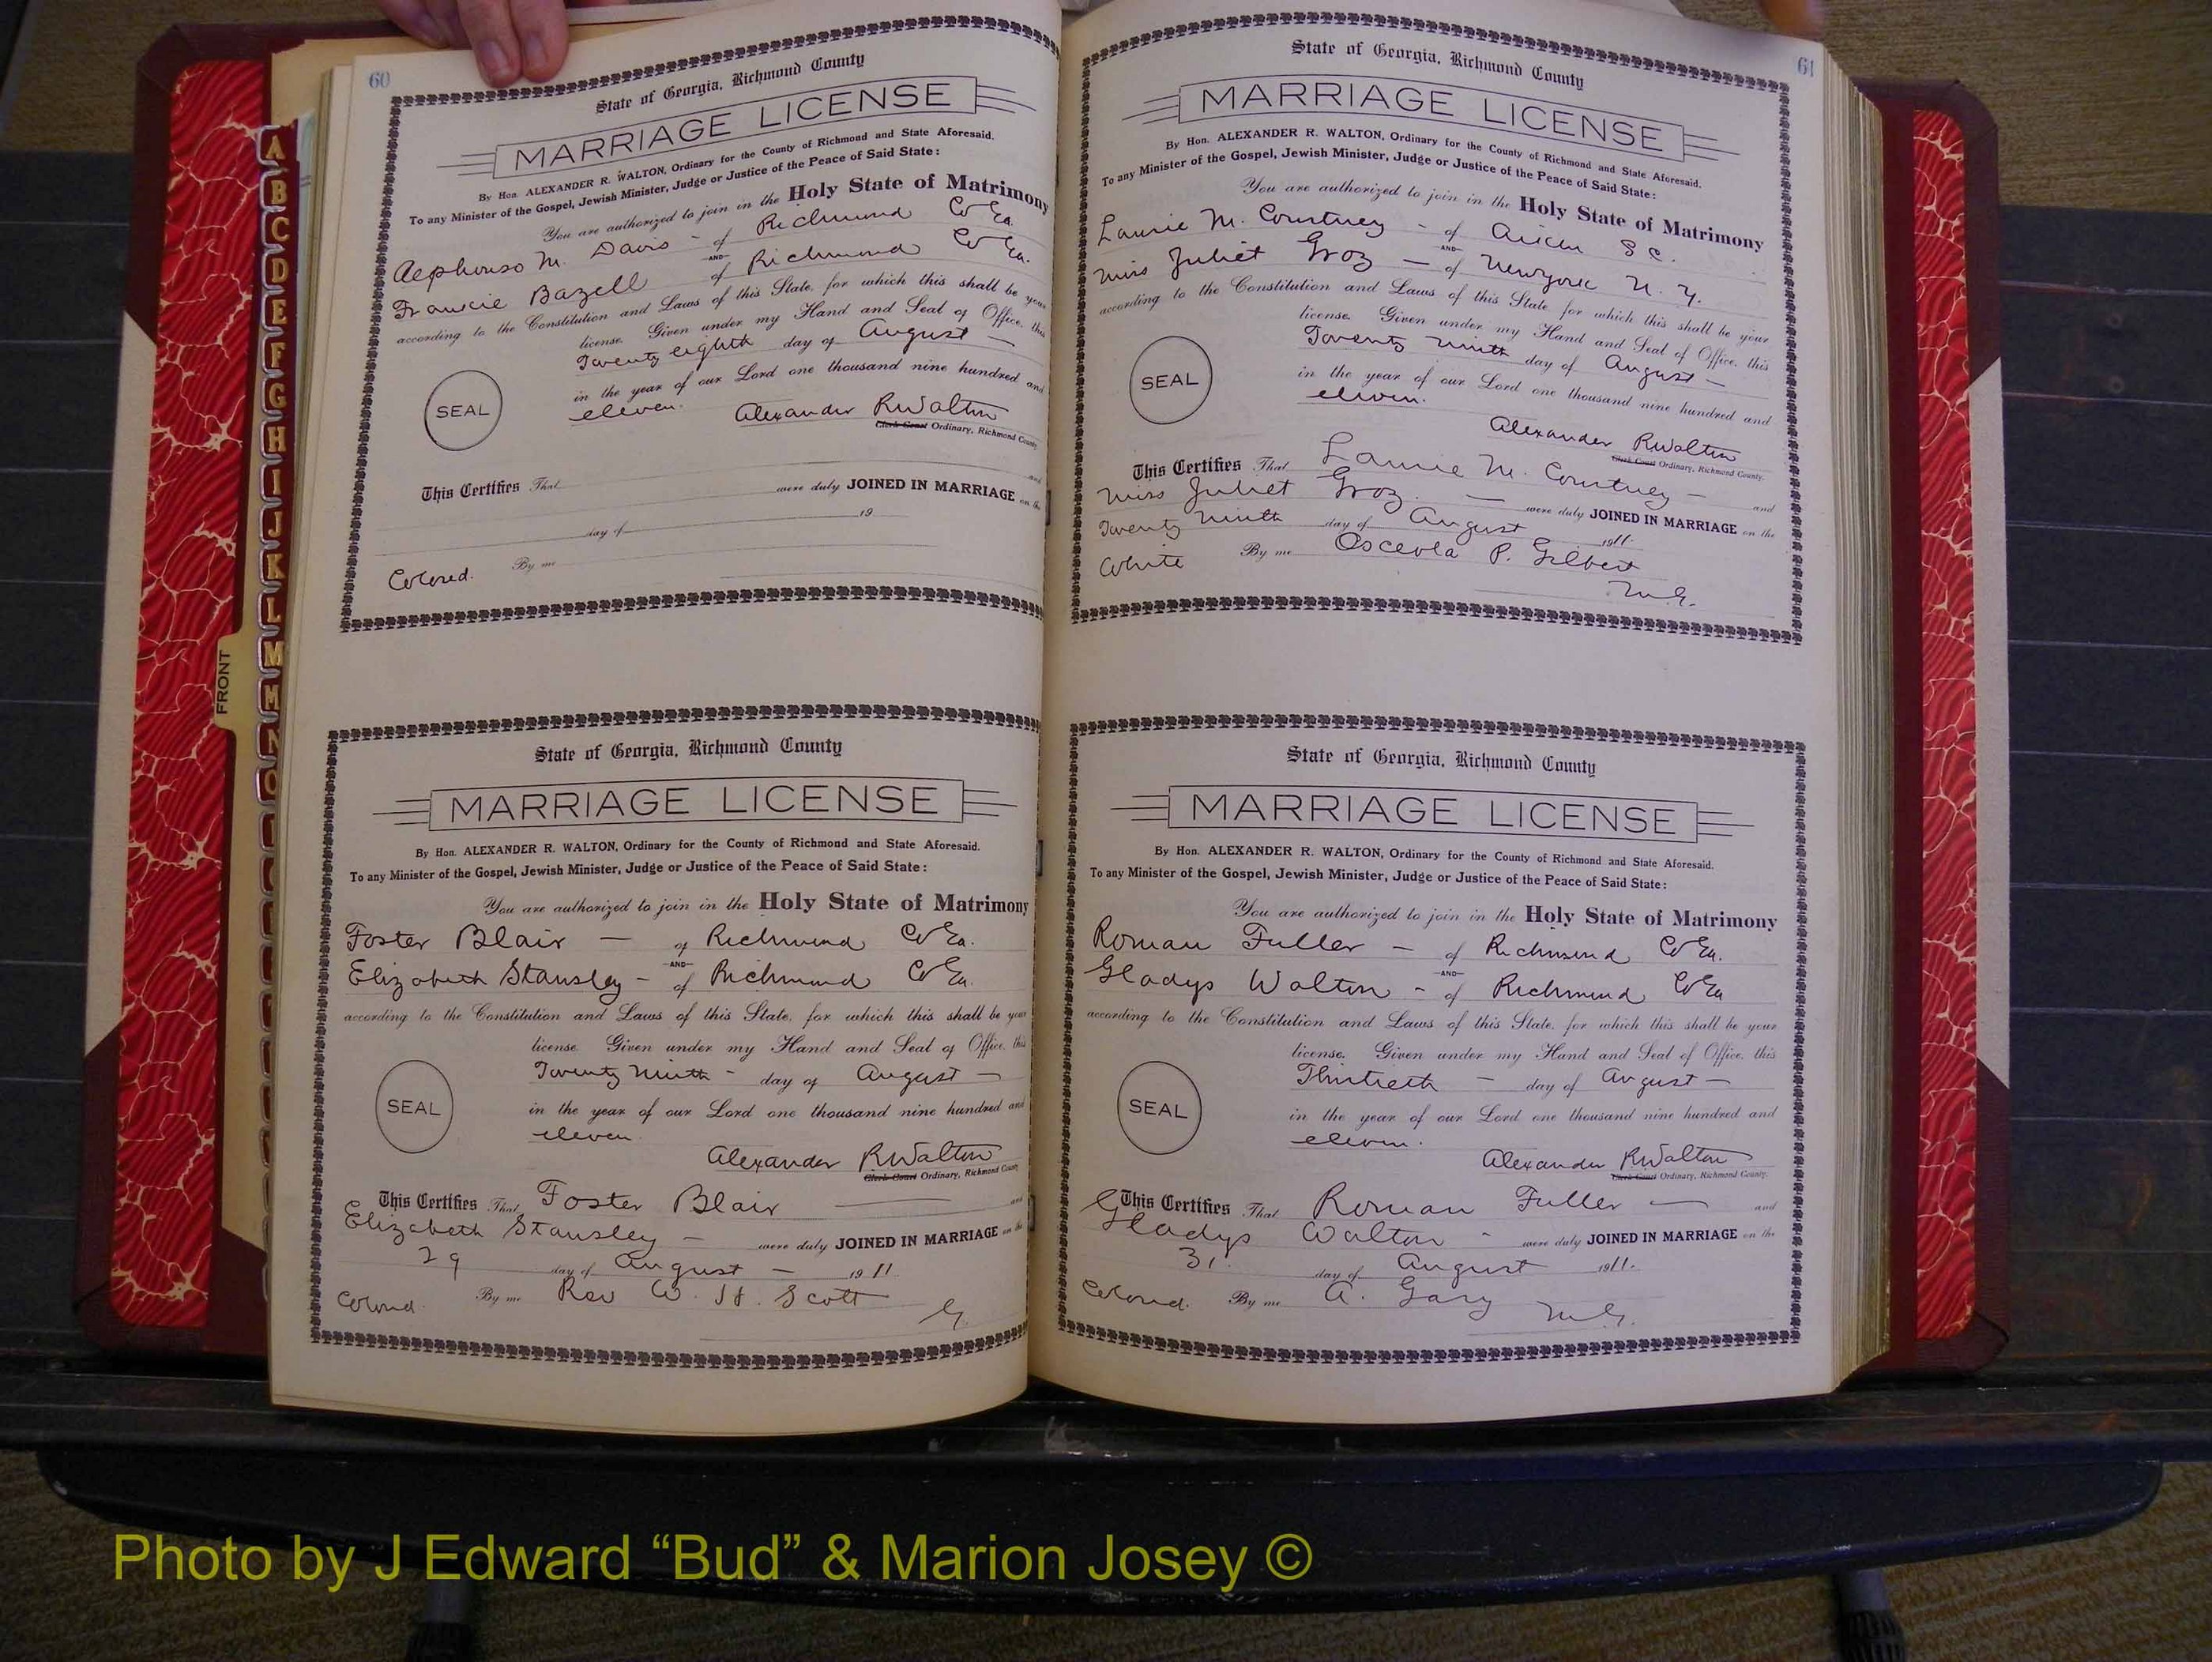 60
State of Georgia, Richmond County
MARRIAGE LICENSE
By Hon. ALEXANDER R. WALTON, Ordinary for the County of Richmond and State Aforesaid.
To any Minister of the Gospel, Jewish Minister, Judge or Justice of the Peace of Said State:
You are authorized to join in the Holy State of Matrimony
Alphonso M. Davis - of Richmond Co Ga.
AND
Francie Bazell of Richmond Co Ga.
according to the Constitution and Laws of this State, for which this shall be your
license. Given under my Hand and Seal of Office, this
Twenty eighth day of August —
in the year of our Lord one thousand nine hundred and
SEAL
eleven.
Alexander R Walton
Clerk Court Ordinary, Richmond County
This Certifies That and
were duly JOINED IN MARRIAGE on the
day of 19
Colored. By me
State of Georgia, Richmond County
MARRIAGE LICENSE
By Hon. ALEXANDER R. WALTON, Ordinary for the County of Richmond and State Aforesaid.
To any Minister of the Gospel, Jewish Minister, Judge or Justice of the Peace of Said State:
You are authorized to join in the Holy State of Matrimony
Foster Blair — of Richmond Co Ga.
AND
Elizabeth Stansley - of Richmond Co Ga.
according to the Constitution and Laws of this State, for which this shall be your
license Given under my Hand and Seal of Office, this
Twenty Ninth - day of August —
SEAL
in the year of our Lord one thousand nine hundred and
eleven.
Alexander R Walton
Clerk Court Ordinary, Richmond County
This Certifies That Foster Blair — and
Elizabeth Stansley - were duly JOINED IN MARRIAGE on the
29 day of August — 1911
Colored. By me Rev W. H. Scott
G.
61
State of Georgia, Richmond County
MARRIAGE LICENSE
By Hon. ALEXANDER R. WALTON, Ordinary for the County of Richmond and State Aforesaid.
To any Minister of the Gospel, Jewish Minister, Judge or Justice of the Peace of Said State:
You are authorized to join in the Holy State of Matrimony
Laurie M. Courtney - of Aiken S C.
AND
Miss Juliet Groz — of New York N. Y.
according to the Constitution and Laws of this State for which this shall be your
license. Given under my Hand and Seal of Office, this
Twenty Ninth day of August —
SEAL
in the year of our Lord one thousand nine hundred and
eleven.
Alexander R Walton
Clerk Court Ordinary, Richmond County.
This Certifies That Laurie M. Courtney — and
Miss Juliet Groz. — were duly JOINED IN MARRIAGE on the
Twenty Ninth day of August 1911.
White By me Osceola P. Gilbert
M.G.
State of Georgia, Richmond County
MARRIAGE LICENSE
By Hon. ALEXANDER R. WALTON, Ordinary for the County of Richmond and State Aforesaid.
To any Minister of the Gospel, Jewish Minister, Judge or Justice of the Peace of Said State:
You are authorized to join in the Holy State of Matrimony
Roman Fuller - of Richmond Co Ga.
AND
Gladys Walton - of Richmond Co Ga
according to the Constitution and Laws of this State, for which this shall be your
license. Given under my Hand and Seal of Office, this
Thirtieth - day of August —
SEAL
in the year of our Lord one thousand nine hundred and
eleven.
Alexander R Walton
Clerk Court Ordinary, Richmond County.
This Certifies That Roman Fuller — and
Gladys Walton - were duly JOINED IN MARRIAGE on the
31. day of August 1911.
Colored. By me A. Gary M.G.
A
B
C
D
E
F
G
H
I
J
K
L
M
M
N
O
FRONT
Photo by J Edward “Bud” & Marion Josey ©